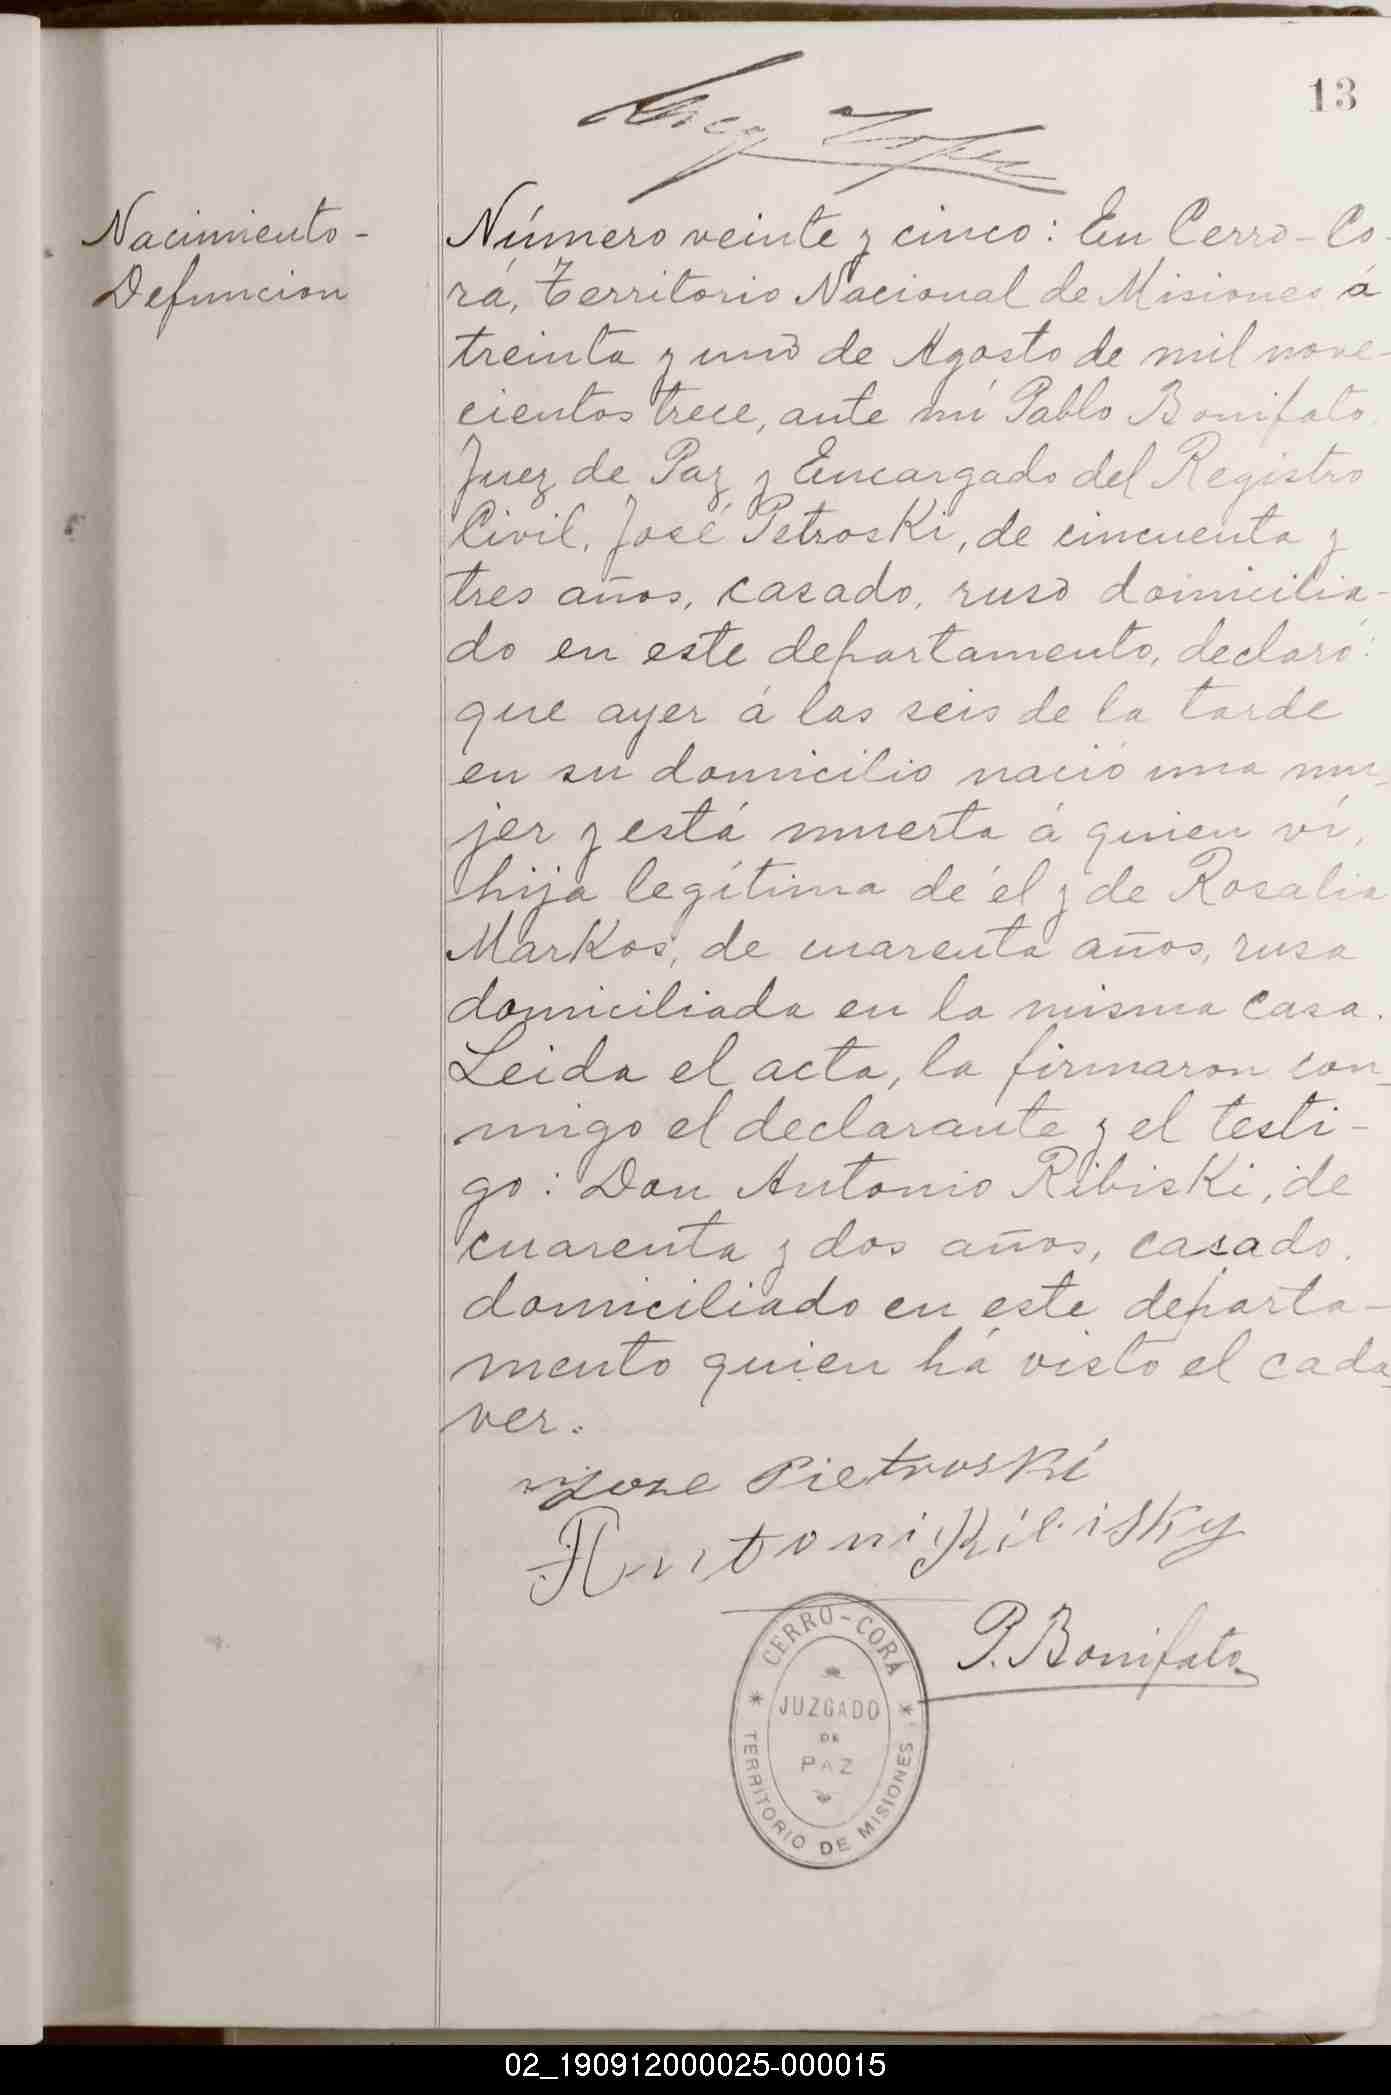 13
Nacimiento-
Defuncion
Número veinte y cinco: En Cerro-Co-
rá, Territorio Nacional de Misiones á
treinta y uno de Agosto de mil nove-
cientos trece, ante mí Pablo Bonifato,
Juez de Paz y Encargado del Registro
Civil, José Petroski, de cincuenta y
tres años, casado, ruso domicilia-
do en este departamento, declaró:
que ayer á las seis de la tarde
en su domicilio nació una mu-
jer y está muerta á quien ví,
hija legítima de él y de Rosalia
Markos, de cuarenta años, rusa
domiciliada en la misma casa.
Leida el acta, la firmaron con-
migo el declarante y el testi-
go: Don Antonio Ribiski, de
cuarenta y dos años, casado,
domiciliado en este departa-
mento quien há visto el cada-
ver.
Joze Pietroski
Antoni
P. Bonifato
CERRO-CORÁ
JUZGADO
DE
PAZ
TERRITORIO DE MISIONES
02_190912000025-000015